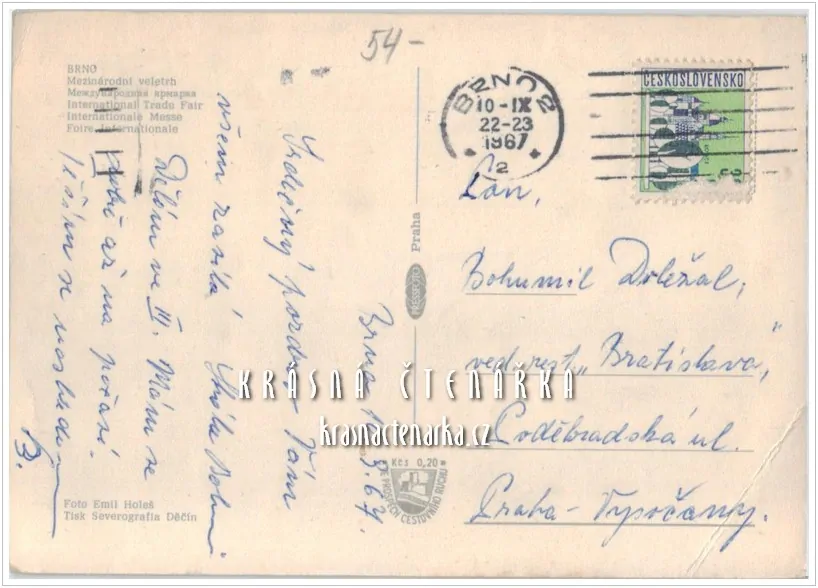 54-
BRNO
Mezinárodní veletrh
Международная ярмарка
International Tradu Fair
Internationale Messe
Foire Internationale
BRNO 2
10-IX
22-23
1967
12
ČESKOSLOVENSKO
Brno 10.9.67.
Srdečný pozdrav Vám
všem zasílá
Dělám ve III. Mám se
dobře až na počasí.
Těším se
B.
Pan,
Bohumil Doležal,
ved. rest. „Bratislava“,
Poděbradská ul.
Praha - Vysočany.
PRESSFOTO Praha
Kčs 0,20
VE PROSPĚCH CESTOVNÍHO RUCHU
KRÁSNÁ ČTENÁŘKA
krasnactenarka.cz
Foto Emil Holeš
Tisk Severografia Děčín